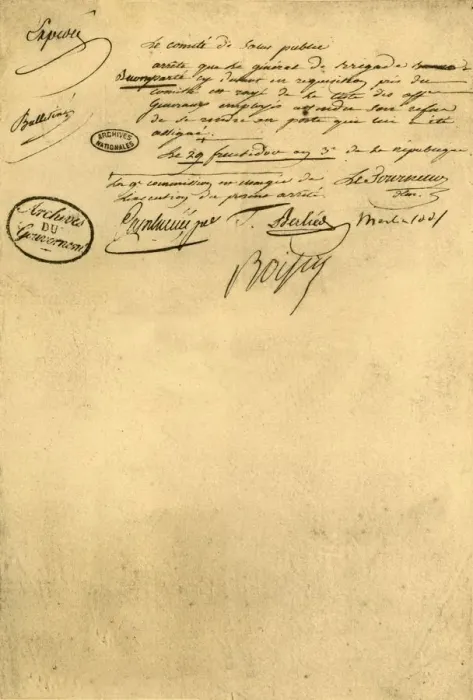 Expédié
Le comité de Salut public
arrête que le général de brigade
Buonaparte cy devant en requisition près du
comité en rayé de la liste des off.
Généraux employés attendu son refus
de se rendre au poste qui lui a été
assigné.
Bulletin
ARCHIVES
NATIONALES
Le 29 fructidor an 3e de la République
La 9e commission est chargée de
l'exécution du présent arrêté.
Le Tourneur
Archives
DU
Gouvernement
Cambacérès T. Berlier Merlin
Boissy